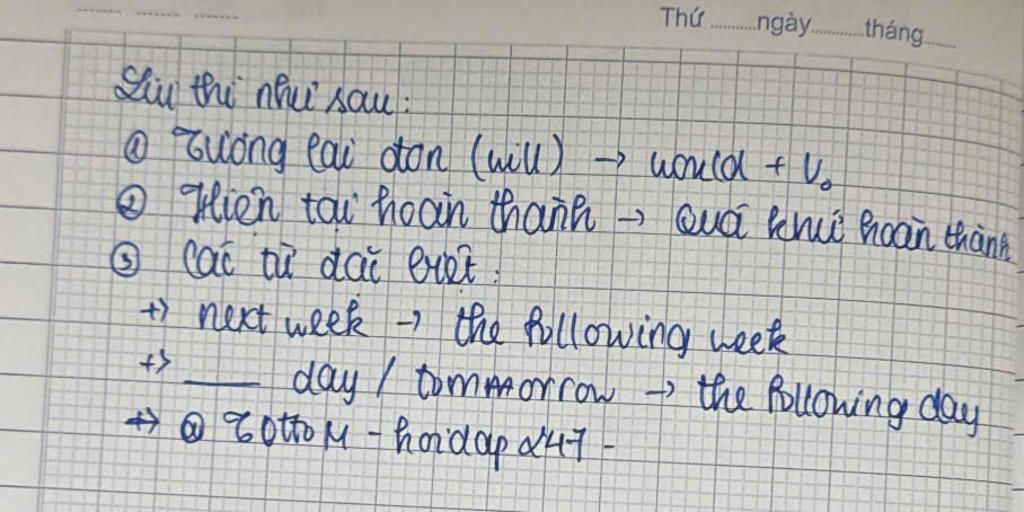 Thứ ............ngày.............tháng........
Lùi thì như sau:
① Tương lai đơn (will) → would + V₀
② Hiện tại hoàn thành → Quá khứ hoàn thành
③ Các từ đặc biệt:
+> next week → the following week
+> ___ day / tommorrow → the following day
+> @ - hoidap247 -